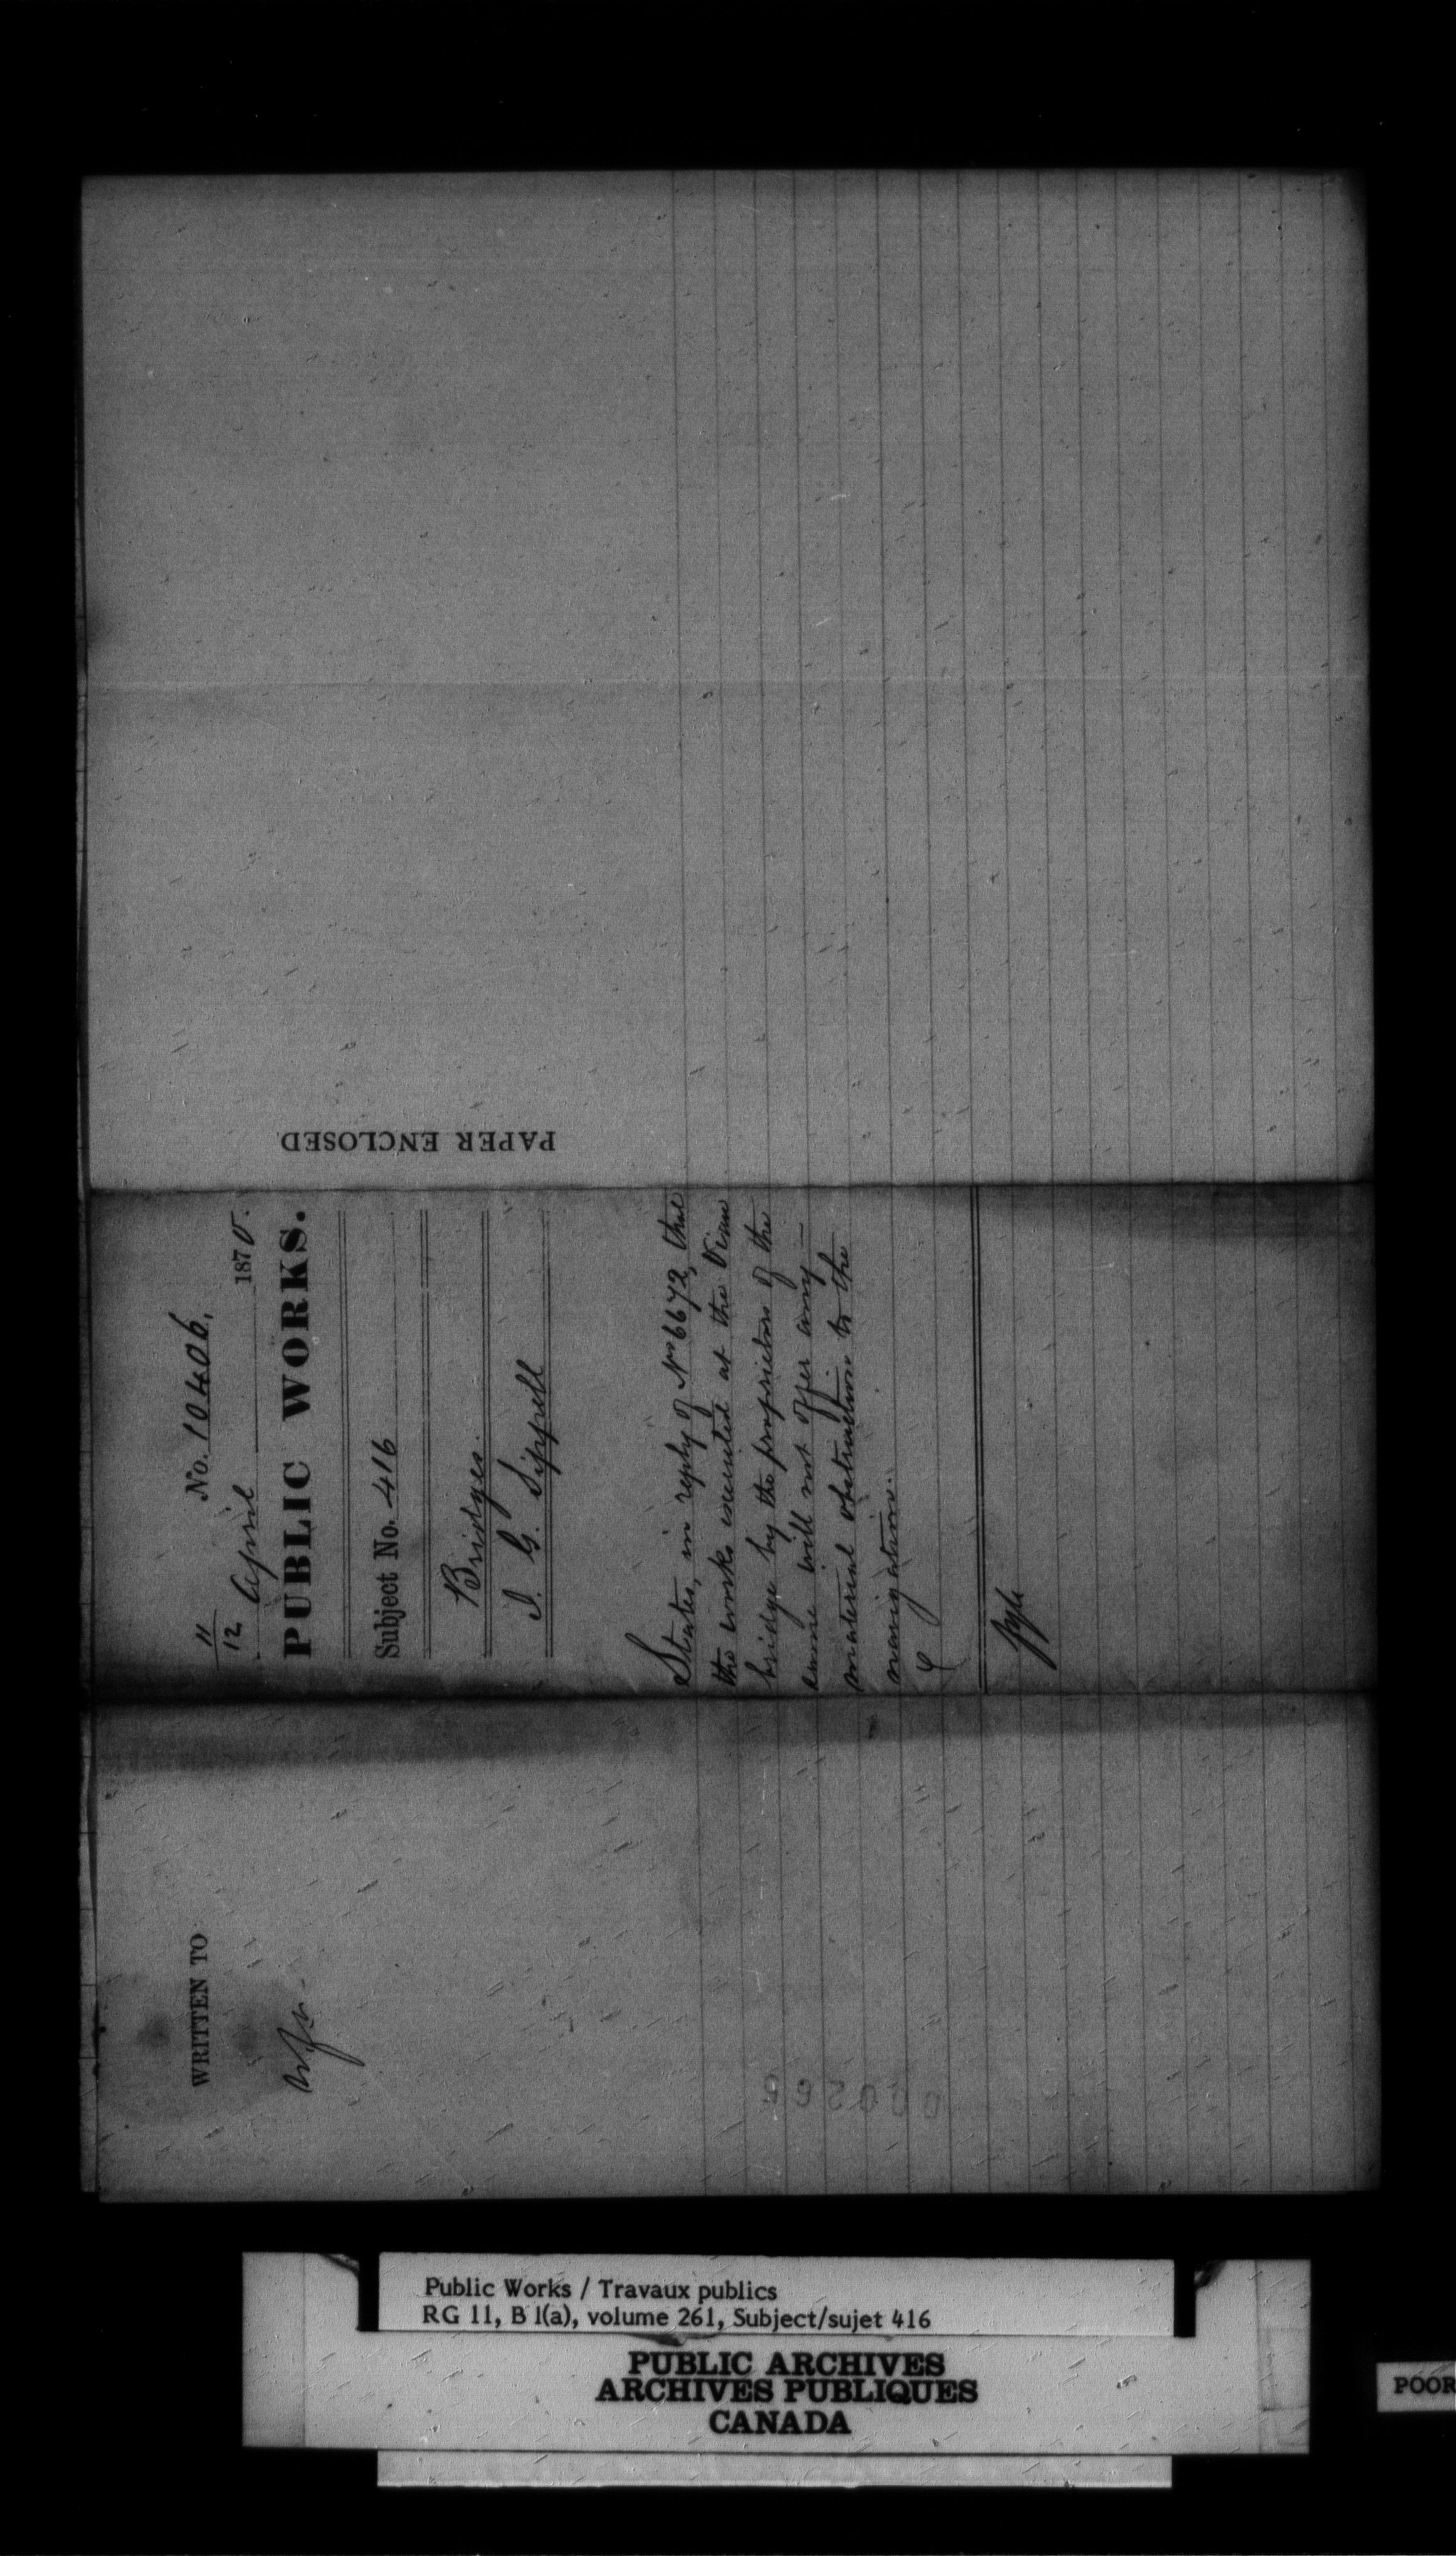 PAPER ENCLOSED
11/12 No. 10406.
April 1870.
PUBLIC WORKS.
Subject No. 416
Bridges.
J. G. Sippell
States, in reply of No 6672, that
the works executed at the Viau
bridge by the proprietors of the
same will not offer any
material obstruction to the
navigation.
WRITTEN TO
Public Works / Travaux publics
RG 11, B 1(a), volume 261, Subject/sujet 416
PUBLIC ARCHIVES
ARCHIVES PUBLIQUES
CANADA
POOR